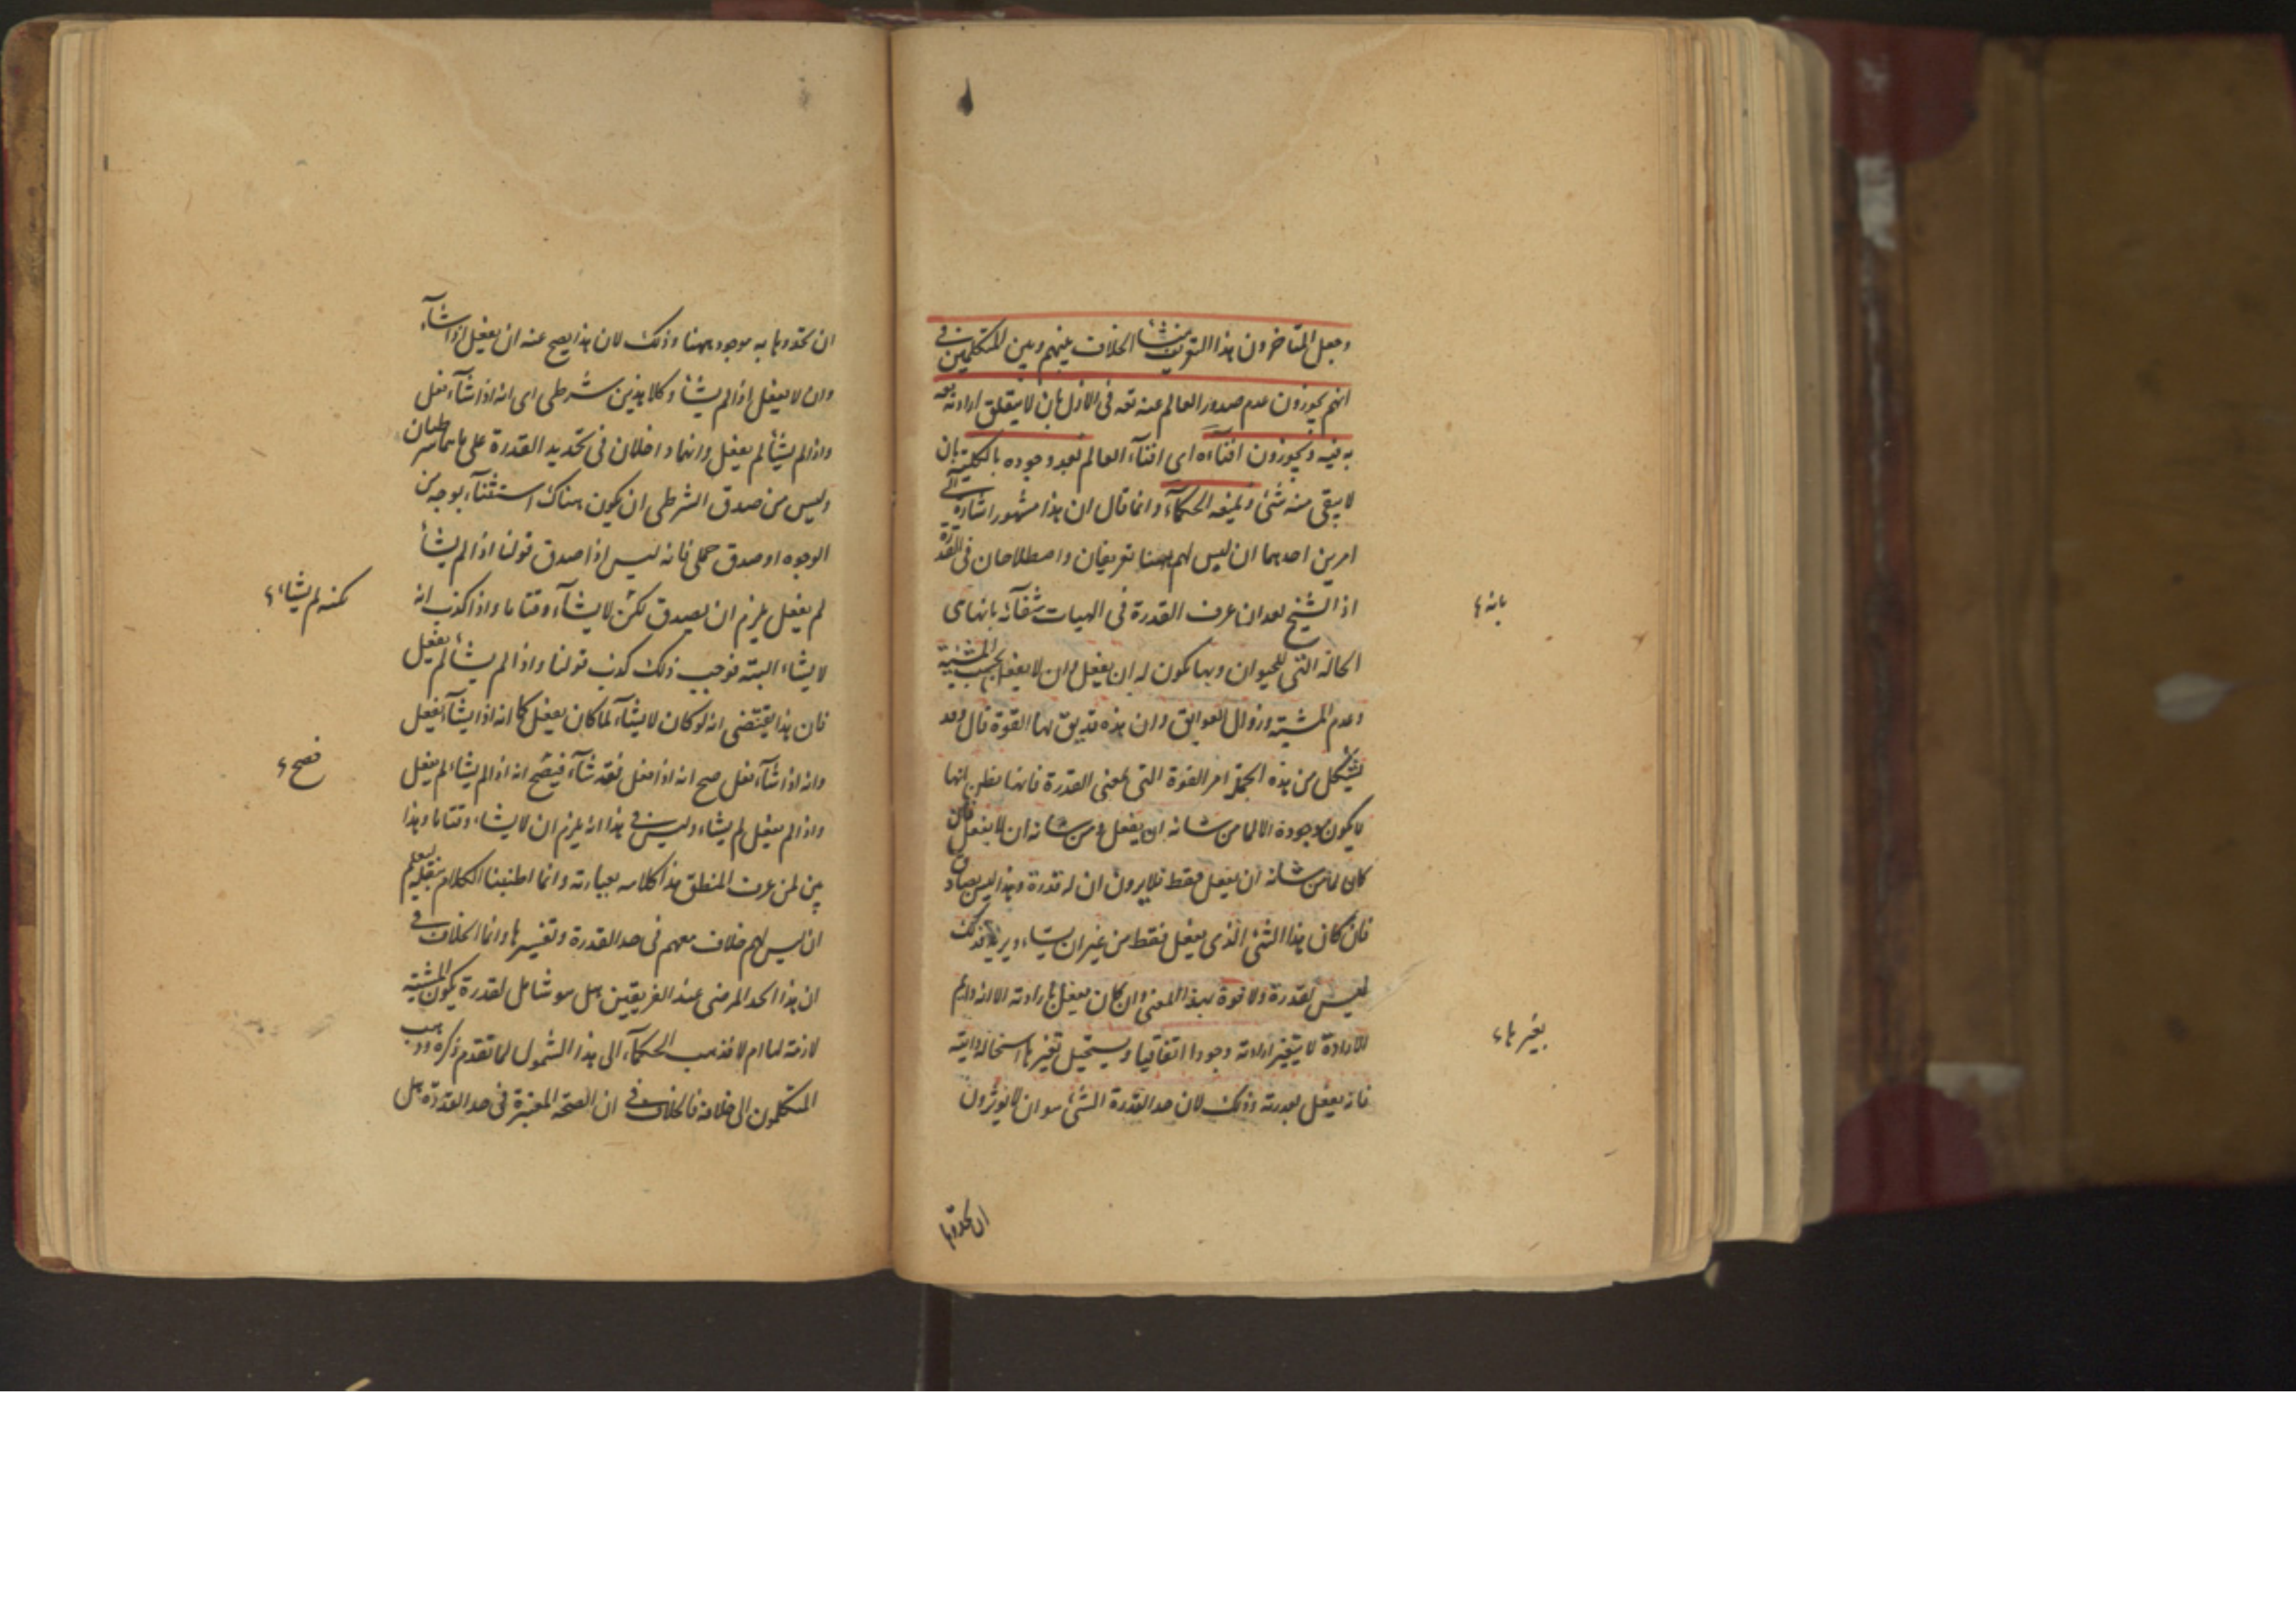 وجعل المتأخرون هذا التعريف منشأ الخلاف بينهم وبين المتكلمين في
انهم يجوزون عدم صدور العالم عنه تعه في الازل بان لا يتعلق ارادته تعه
به فيه ويجوزون افنآءه اى افنآء العالم بعد وجوده بالكلية بان
لا يبقى منه شئ ويمنعه الحكمآء وانما قال ان هذا مشهور اشارة الى
امرين احدهما ان ليس لهم ههنا تعريفان واصطلاحان في القدرة
اذ الشيخ بعد ان عرف القدرة في الهيات شفآئه بانها هى
الحالة التى للحيوان وبها يكون له ان يفعل وان لا يفعل بحسب المشية
وعدم المشية وزوال العوايق وان هذه قد يق لها القوة قال وقد
يشكل من هذه الجملة امر القوة التى بمعنى القدرة فانها يظن انها
لا يكون موجودة الا لما من شانه ان يفعل ومن شانه ان لا يفعل فان
كان لما من شانه ان يفعل فقط فلا يرون ان له قدرة وهذا ليس بصادق
فان كان هذا الشئ الذى يفعل فقط من غير ان يشاء ويريد فذلك
ليس له قدرة ولا قوة بهذا المعنى وان كان يفعل بارادته الا انه دايم
الارادة لا يتغير ارادته وجودا اتفاقيا ويستحيل تغيرها استحالة ذاتية
فانه يفعل بقدرته وذلك لان حد القدرة الشئ هو ان لا يؤثرون
بانه
بغيرها
ان يحدوها
ان يحدوها به موجود ههنا وذلك لان هذا يصح عنه ان يفعل اذا شآء
وان لا يفعل اذا لم يشأ وكلا هذين شرطى اى انه اذا شآء فعل
واذا لم يشأ لم يفعل وانما داخلان في تحديد القدرة على ما هما شرطيان
وليس من صدق الشرطى ان يكون هناك استثنآء بوجه من
الوجوه او صدق حملى فانه ليس اذا صدق قولنا اذا لم يشأ
لم يفعل يلزم ان يصدق لكن لا يشآء وقتا ما واذا كذب انه
لا يشاء البتة فوجب ذلك كذب قولنا واذا لم يشأ لم يفعل
فان هذا يقتضى انه لو كان لا يشآء لما كان يفعل كما انه اذا يشآء يفعل
وانه اذا شآء فعل صح انه اذا فعل فقد شآء فيصح انه اذا لم يشاء لم يفعل
واذا لم يفعل لم يشاء وليس في هذا انه يلزم ان لا يشاء وقتا ما وهذا
بين لمن عرف المنطق هذا كلامه بعبارته وانما اطنبنا الكلام بنقله ليعلم
ان ليس لهم خلاف معهم في حد القدرة وتفسيرها وانما الخلاف في
ان هذا الحد المرضى عند الفريقين هل هو شامل لقدرة يكون المشية
لازمة لها ام لا فذهب الحكمآء الى هذا الشمول لما تقدم ذكره وذهب
المتكلمون الى خلافه فالخلاف في ان الصحة المعتبرة في حد القدرة هل
لكنه لم يشاء
فصح